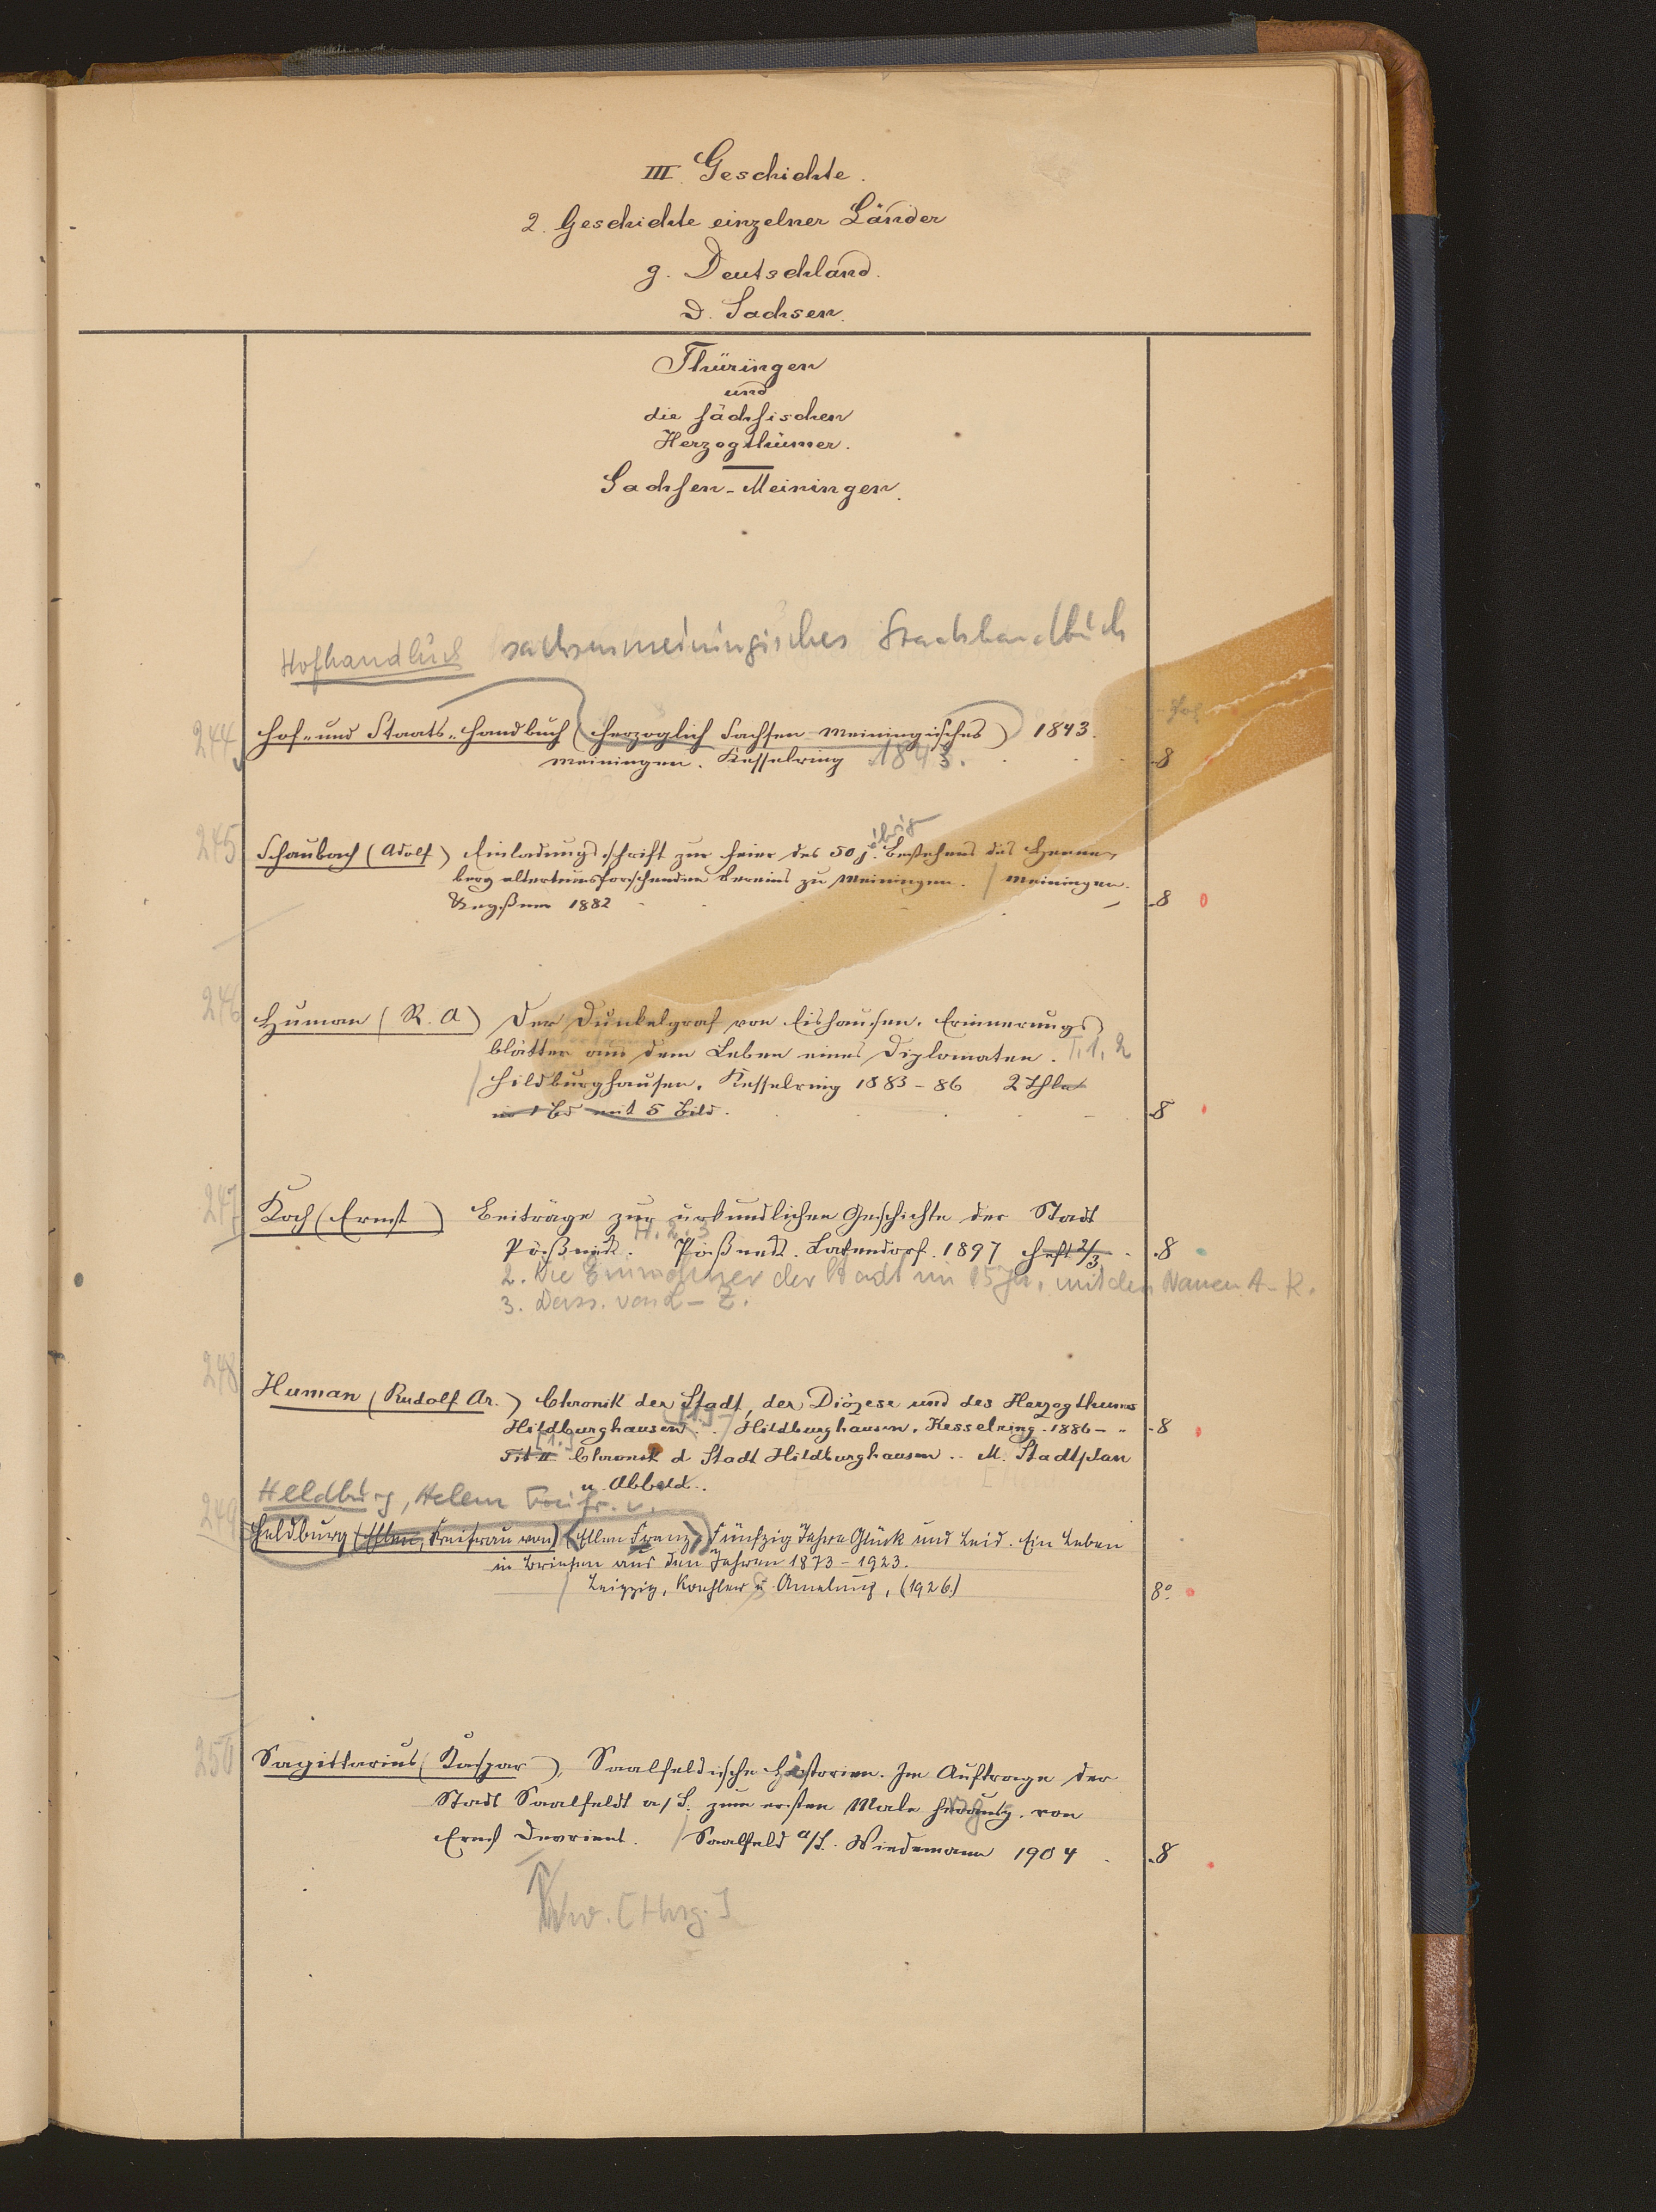 III. Geschichte.
2. Geschichte einzelner Länder
g. Deutschland.
D. Sachsen.
Thüringen
und
die sächsischen
Herzogthümer.
Sachsen-Meiningen.
Hofhandbuch sachsenmeiningisches Staatshandbuch
244 Hof- und Staats-Handbuch (Herzoglich Sachsen Meiningisches) 1843.
Meiningen. Kesselring 1843. 8
245 Schaubach (Adolf) Einladungsschrift zur Feier des 50j. Bestehens des Henne-
berg altertumsforschenden Vereins zu Meiningen. / Meiningen.
1882 8
246 Human (R. A) Der Dunkelgraf von Eishausen. Erinnerungs
blätter aus dem Leben eines Diplomaten. T. 1, 2
Hildburghausen. Kesselring 1883-86 2 Thle
in 1 Bd mit 5 Bild. 8
247 Koch (Ernst) Beiträge zur urkundlichen Geschichte der Stadt
Pößneck. H. 2. 3 Pößneck. Latendorf. 1897 Heft 2/3 8
2. Die Einwohner der Stadt im 15. Jh. mit den Namen A-K.
3. Dass. von L-Z.
248 Human (Rudolf Ar.) Chronik der Stadt, der Diözese und des Herzogthums
Hildburghausen. [1.]- / Hildburghausen. Kesselring. 1886- 8
[1.] Tit II Chronik d Stadt Hildburghausen.. M. Stadtplan
u. Abbild..
Heldburg, Helene Freifr. v.
249 Heldburg (Ellen, Freifrau von) (Ellen Franz) Fünfzig Jahre Glück und Leid. Ein Leben
in Briefen aus den Jahren 1873-1923.
/ Leipzig, Koehler & Amelung, (1926.) 8°
250 Sagittarius (Kaspar), Saalfeldische Historien. Im Auftrage der
Stadt Saalfeldt a/S. zum ersten Male herausg. von
Ernst Devrient. / Saalfeld a/S. Wiedemann 1904 8
Vw. [Hrsg.]